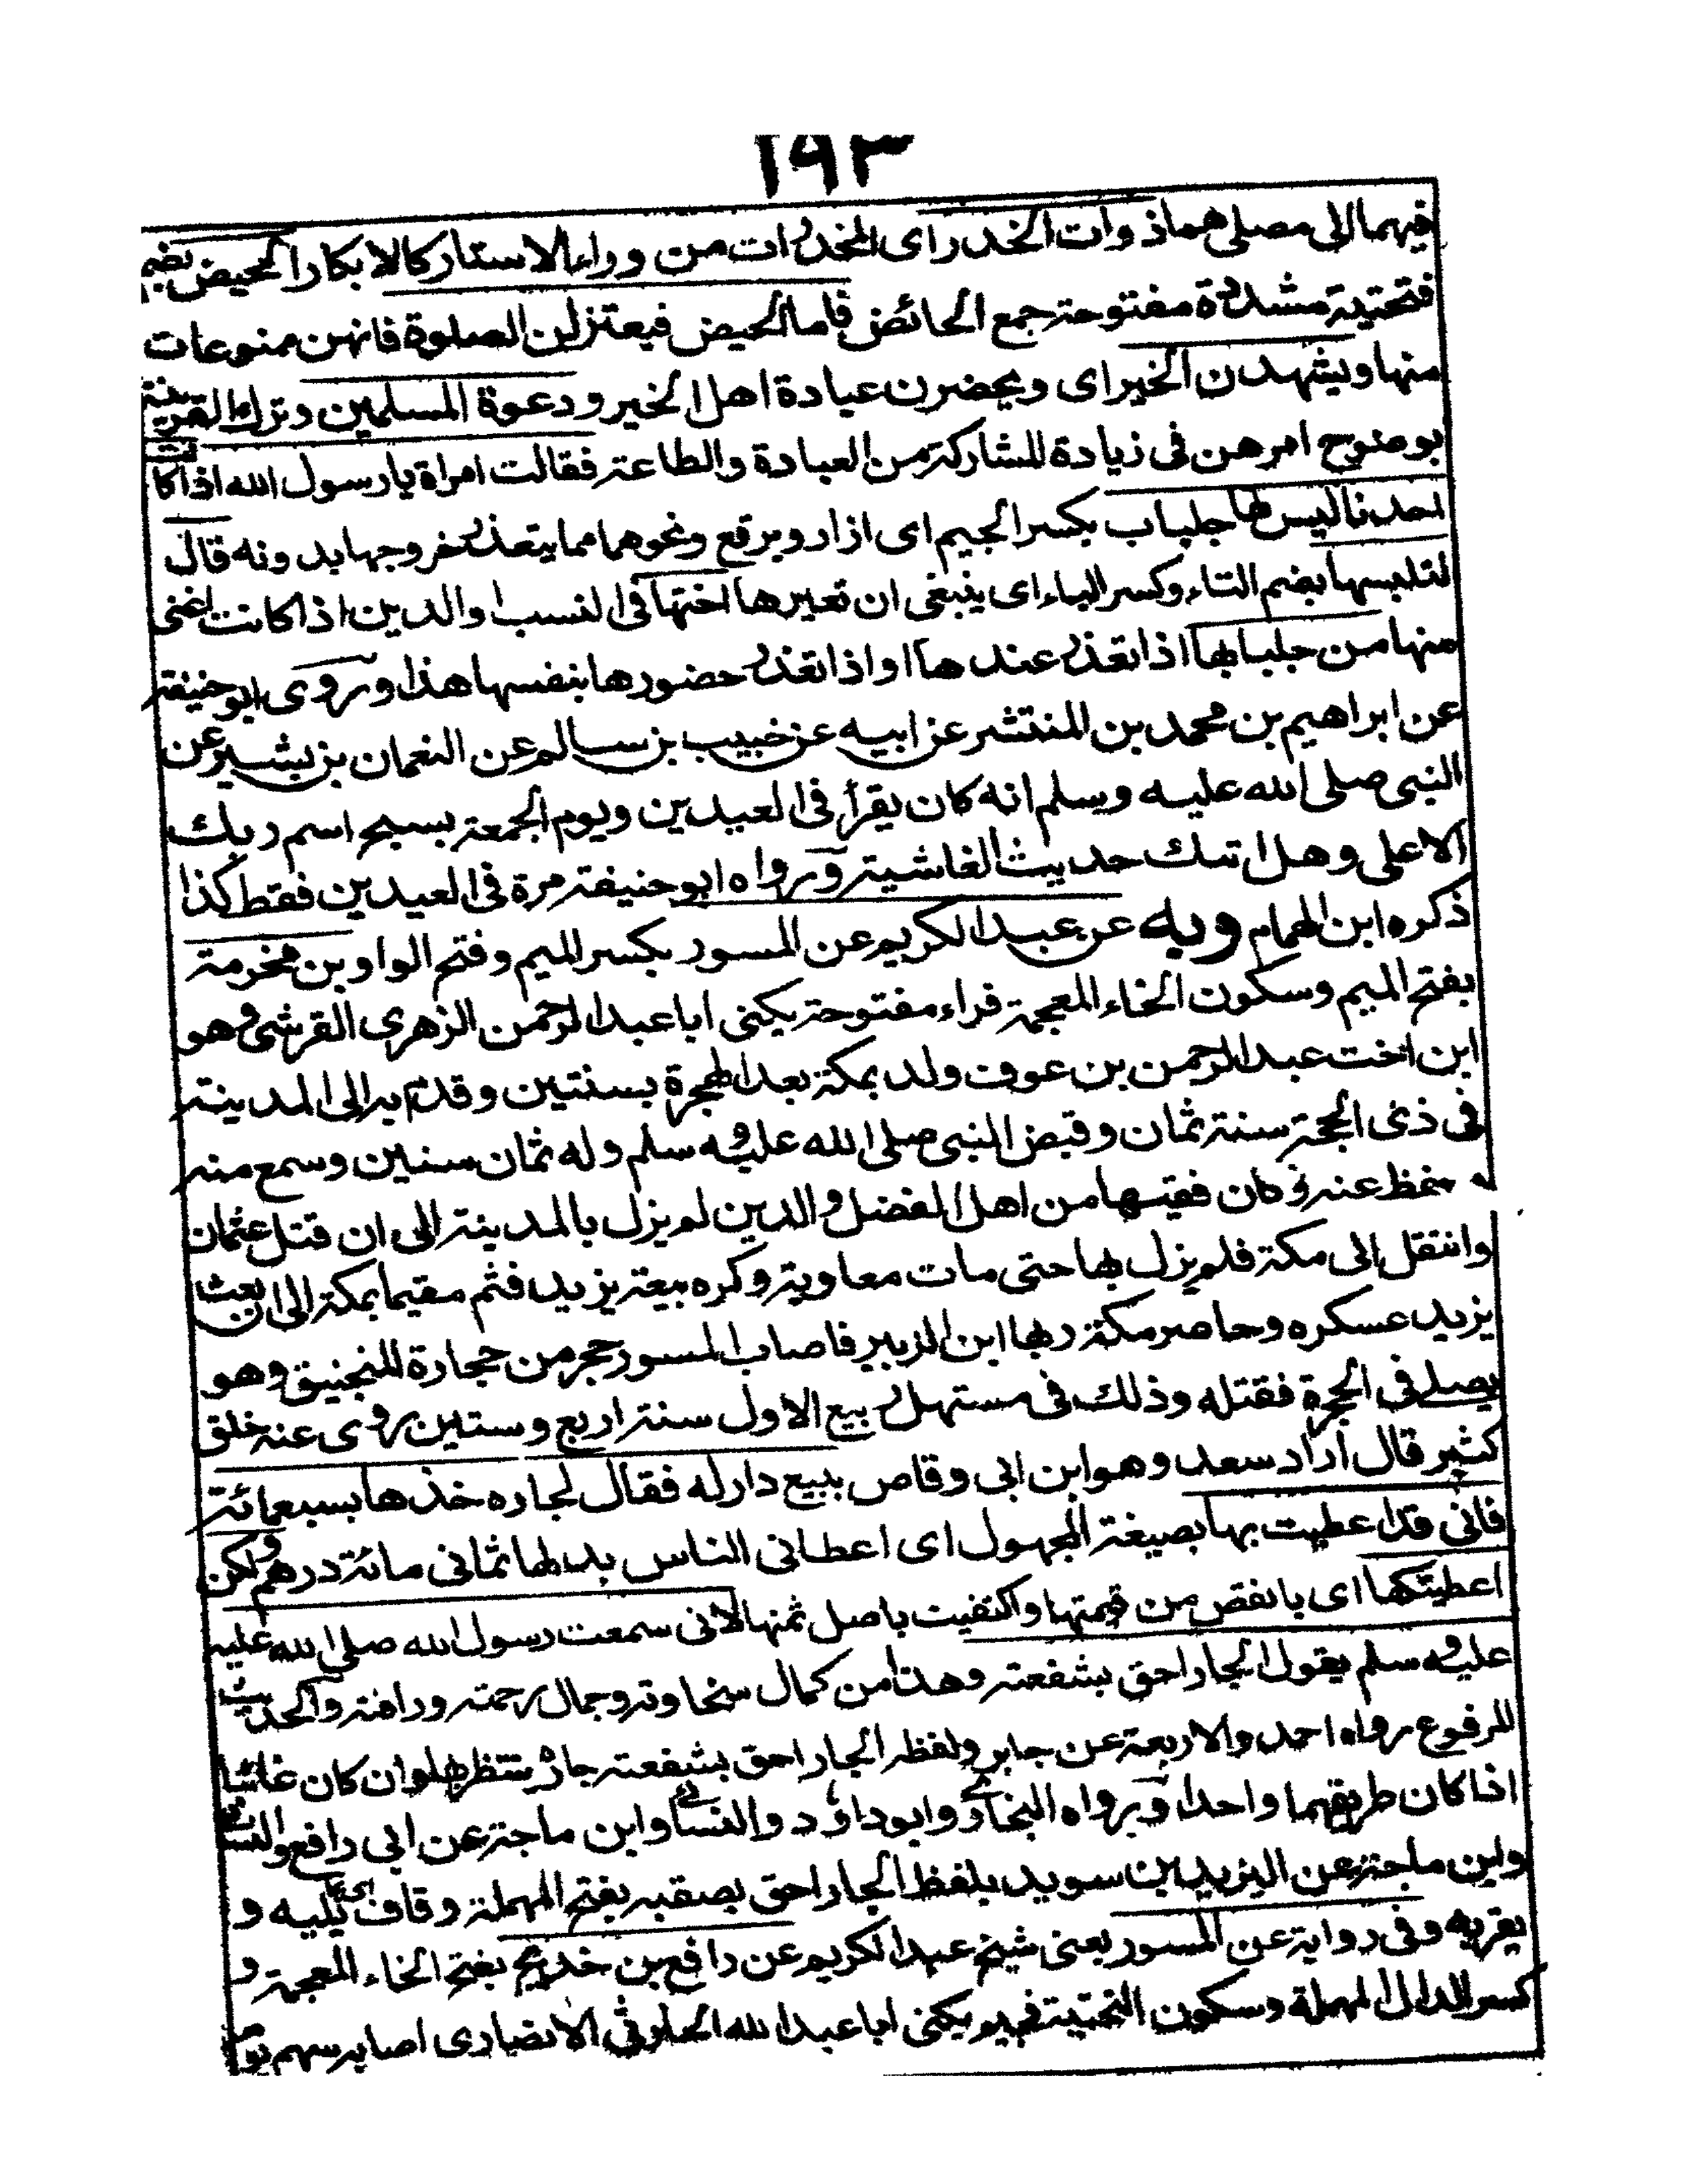 ١٩٣
فيهما الى مصلى هما ذوات الخدر اى المخدرات من وراء الاستار كالابكار الحيض بضم
فتحتية مشددة مفتوحة جمع الحائض فاما الحيض فيعتزلن الصلوة فانهن ممنوعات
منها ويشهدن الخير اى ويحضرن عبادة اهل الخير ودعوة المسلمين وترك القرينة
بوضوح امرهن فى زيادة المشاركة من العبادة والطاعة فقالت امراة يا رسول الله اذا كانت
احدنا ليس لها جلباب بكسر الجيم اى ازار وبرقع ونحوهما مما يتعذر خروجها بدونه قال
لتلبسها بضم التاء وكسر الباء اى ينبغى ان تعيرها اختها فى النسب او الدين اذا كانت اغنى
منها من جلبابها اذا تعذر عندها او اذا تعذر حضورها بنفسها هذا وروى ابو حنيفة
عن ابراهيم بن محمد بن المنتشر عن ابيه عن خبيب بن سالم عن النعمان بن بشير عن
النبى صلى الله عليه وسلم انه كان يقرأ فى العيدين ويوم الجمعة بسبح اسم ربك
الاعلى وهل اتىك حديث الغاشية ورواه ابو حنيفة مرة فى العيدين فقط كذا
ذكره ابن الهمام وبه عن عبد الكريم عن المسور بكسر الميم وفتح الواو بن مخرمة
بفتح الميم وسكون الخاء المعجمة فراء مفتوحة يكنى ابا عبد الرحمن الزهرى القرشى وهو
ابن اخت عبد الرحمن بن عوف ولد بمكة بعد الهجرة بسنتين وقدم به الى المدينة
فى ذى الحجة سنة ثمان وقبض النبى صلى الله عليه وسلم وله ثمان سنين وسمع منه
حفظ عنه وكان فقيها من اهل الفضل والدين لم يزل بالمدينة الى ان قتل عثمان
وانتقل الى مكة فلم يزل بها حتى مات معاوية وكره بيعة يزيد فثم مقيما بمكة الى ان بعث
يزيد عسكره وحاصر مكة وبها ابن الزبير فاصاب المسور حجر من حجارة المنجنيق وهو
يصلى فى الحجرة فقتله وذلك فى مستهل ربيع الاول سنة اربع وستين روى عنه خلق
كثير قال اراد سعد وهو ابن ابى وقاص ببيع دار له فقال لجاره خذها بسبعمائة
فانى قد اعطيت بها بصيغة المجهول اى اعطانى الناس بدلها ثمانى مائة درهم ولكن
اعطيتكها اى بانقص من قيمتها واكتفيت باصل ثمنها لانى سمعت رسول الله صلى الله عليه
عليه وسلم يقول الجار احق بشفعته وهذا من كمال سخاوته وجمال رحمته ورافته والحديث
المرفوع رواه احمد والاربعة عن جابر ولفظه الجار احق بشفعة جاره ينتظر بها وان كان غائبا
اذا كان طريقهما واحدا ورواه البخارى وابو داؤد والنسائى وابن ماجة عن ابى رافع والنسائى
وابن ماجة عن اليزيد بن سويد بلفظ الجار احق بصقبه بفتح المهملة وقاف اى بما يليه و
يقربه وفى رواية عن المسور يعنى شيخ عبد الكريم عن رافع بن خديج بفتح الخاء المعجمة و
كسر الدال المهملة وسكون التحتية فجيم يكنى ابا عبد الله الحارثى الانصارى اصابه سهم يوم